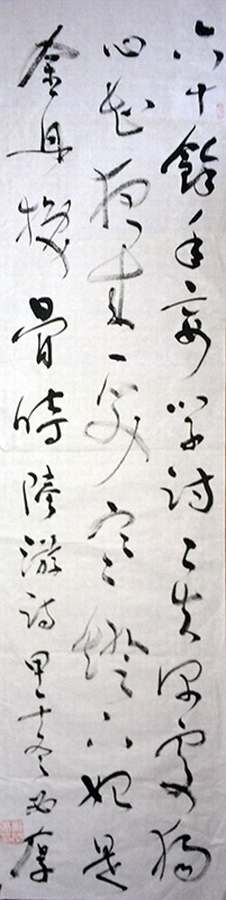 六十餘年妄学詩工夫深處獨
心知夜來一笑寒燈下始是
金丹換骨時陸游詩